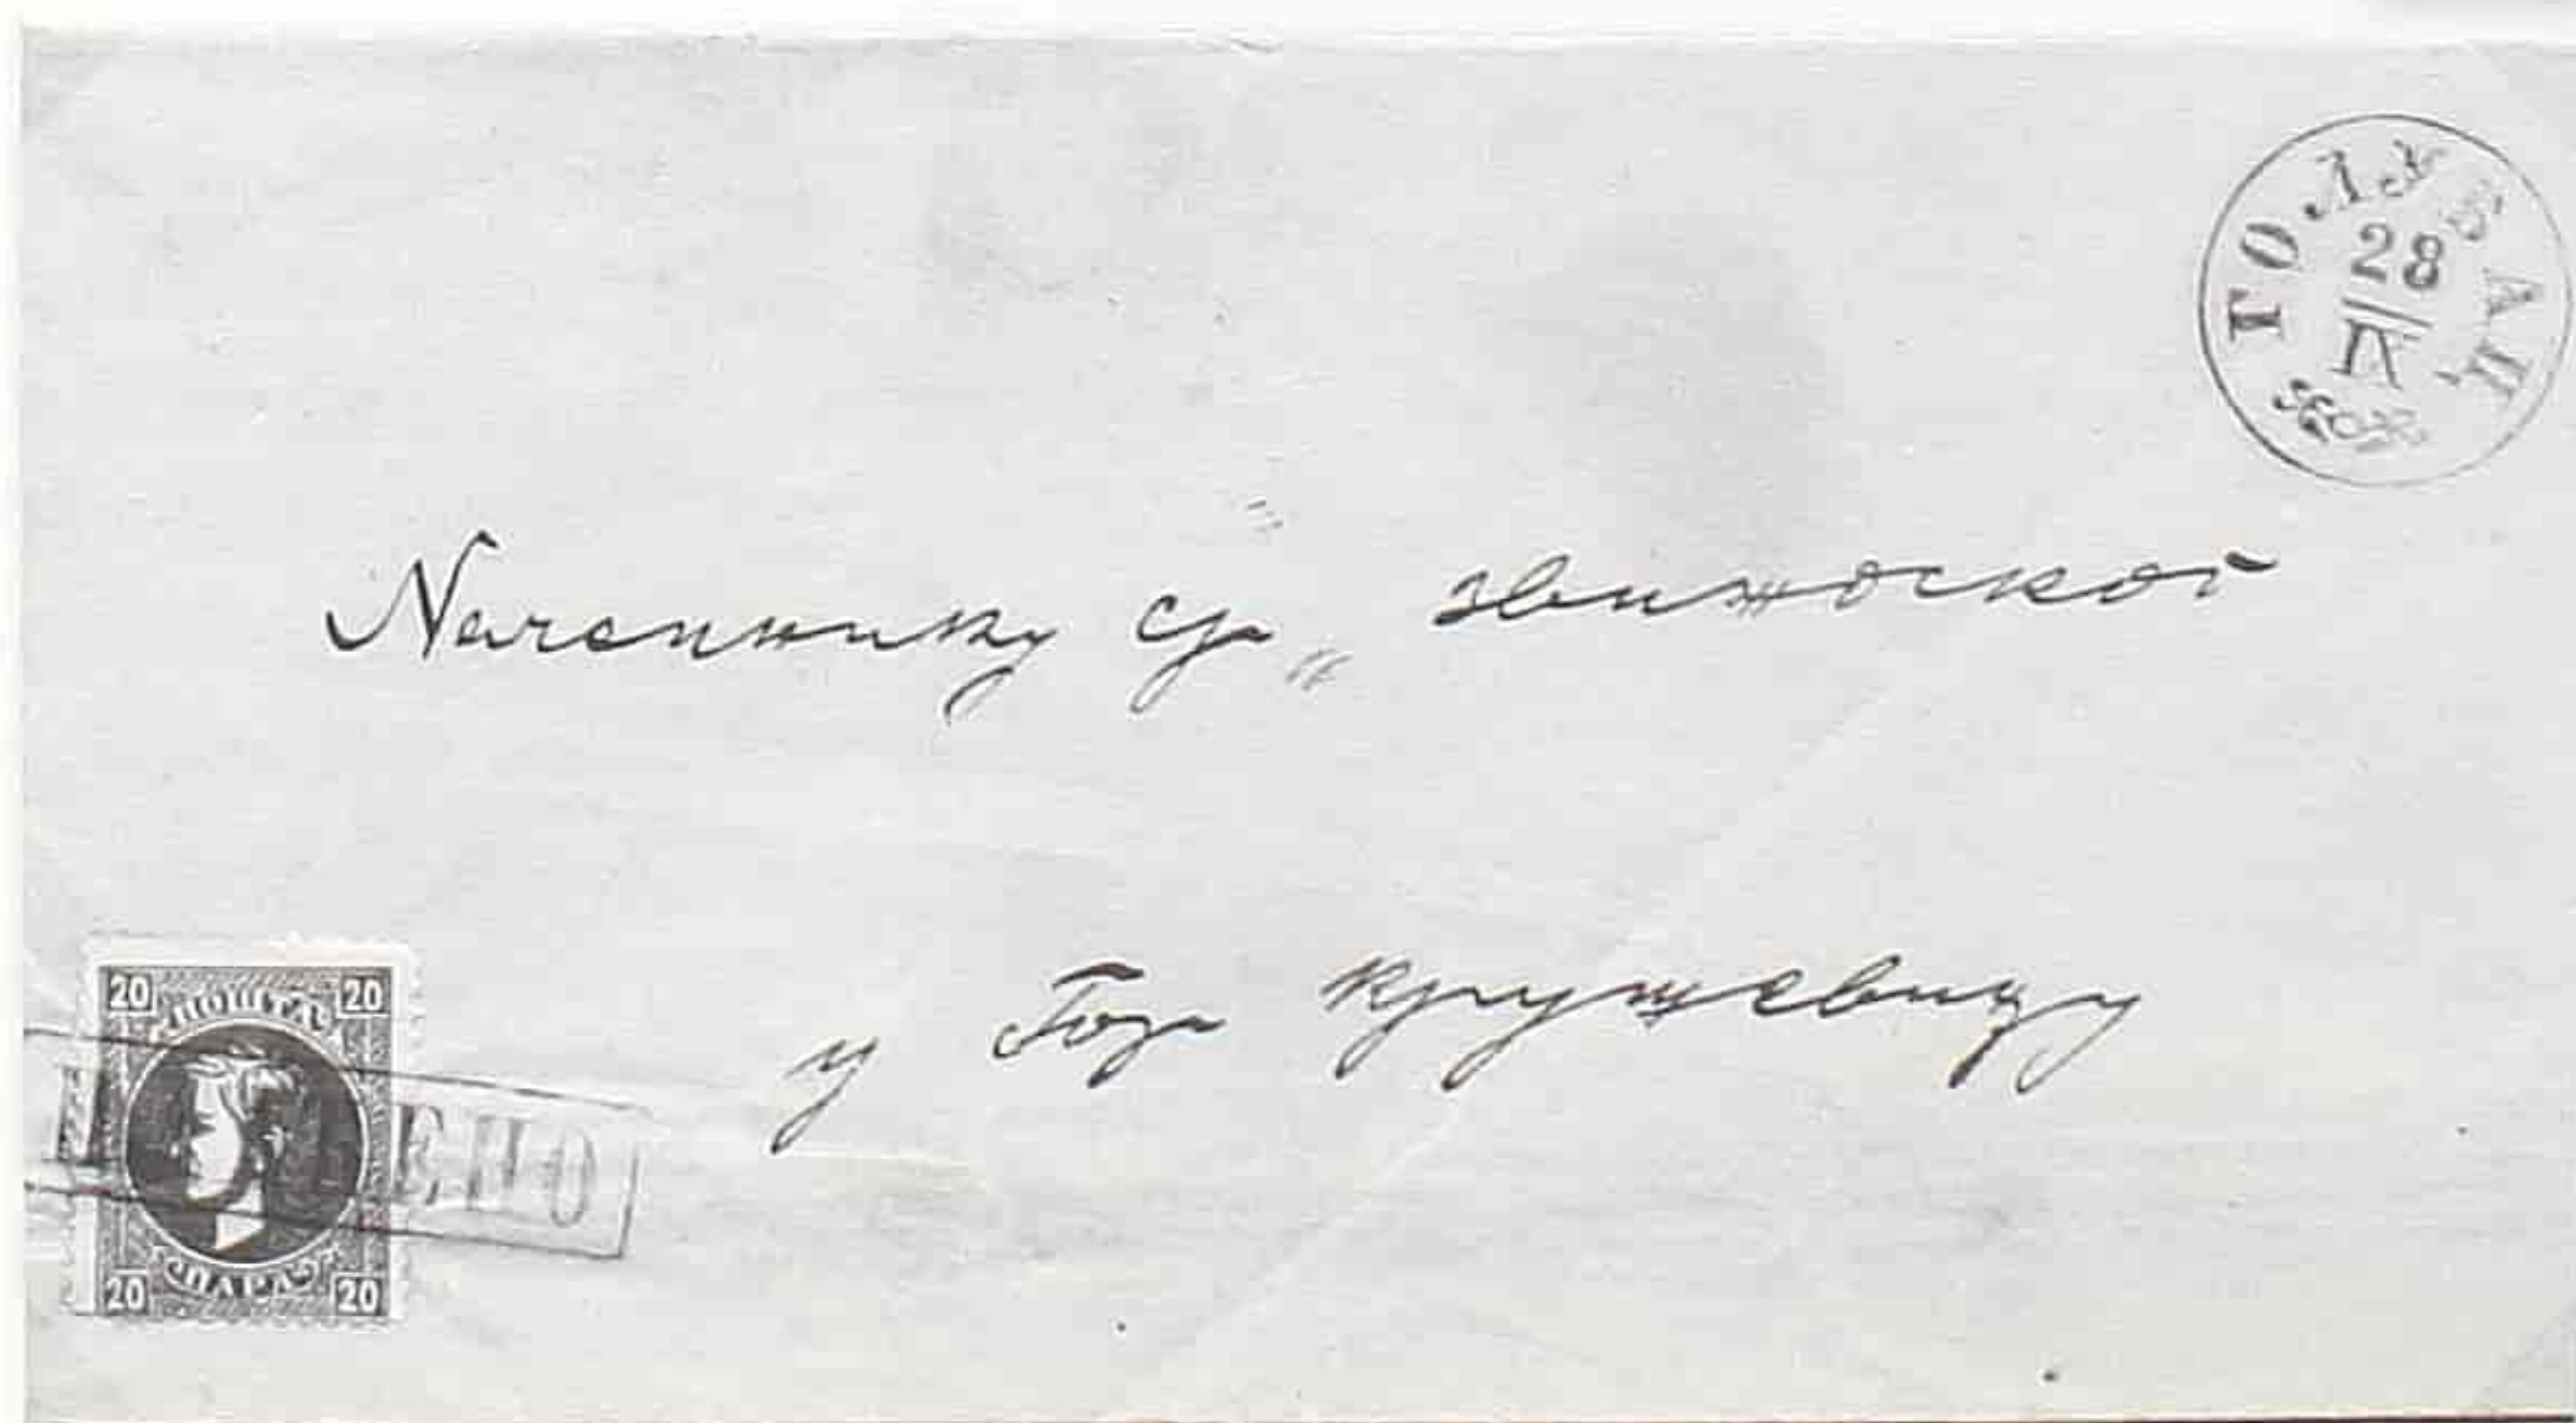 ГОЛУБАЦ
28
IX
Началнику ср„ звишскоӣ
у Гор Крушевицу
20 ПОШТА 20
ЕНО
20 ПАРА 20